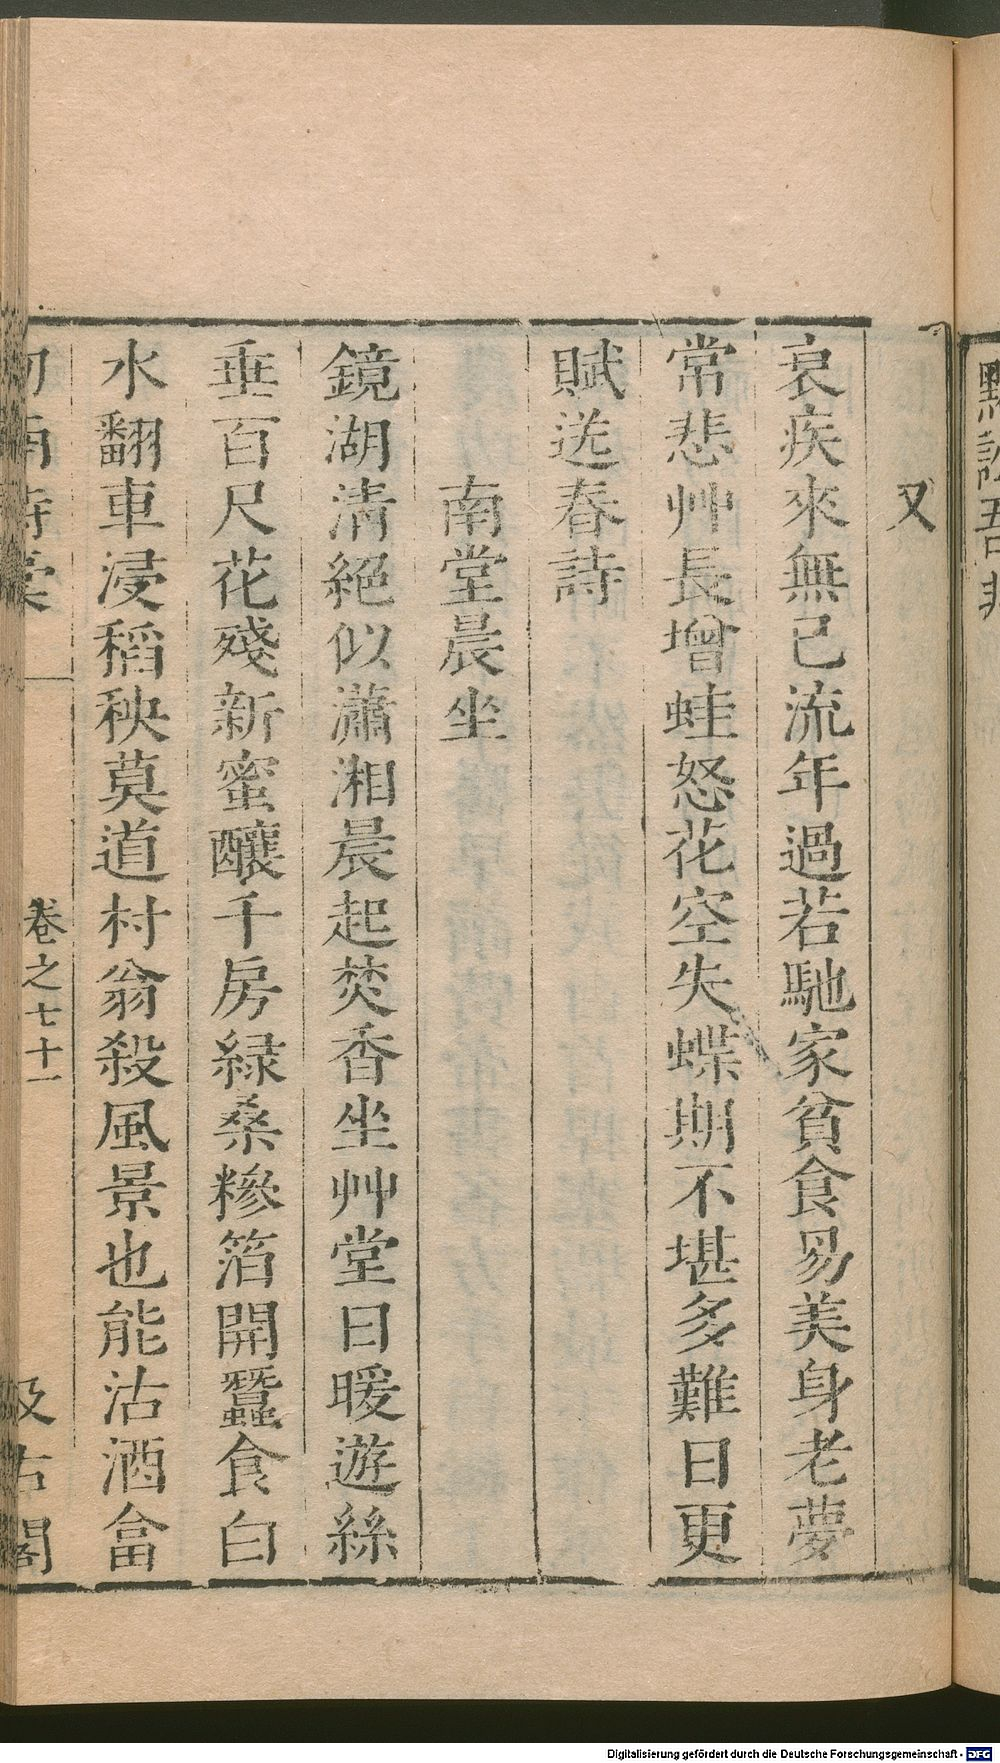 又
衰疾來無已流年過若馳家貧食易美身老夢
常悲艸長增蛙怒花空失蝶期不堪多難日更
賦送春詩
南堂晨坐
鏡湖清絕似瀟湘晨起焚香坐艸堂日暖遊絲
垂百尺花殘新蜜釀千房緑桑糝箔開蠶食白
水翻車浸稻秧莫道村翁殺風景也能沽酒答
卷之七十一
Digitalisierung gefördert durch die Deutsche Forschungsgemeinschaft - DFG